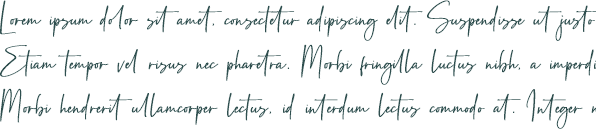 Lorem ipsum dolor sit amet, consectetur adipiscing elit. Suspendisse ut justo
Etiam tempor vel risus nec pharetra. Morbi fringilla luctus nibh, a imperdi
Morbi hendrerit ullamcorper lectus, id interdum lectus commodo at. Integer